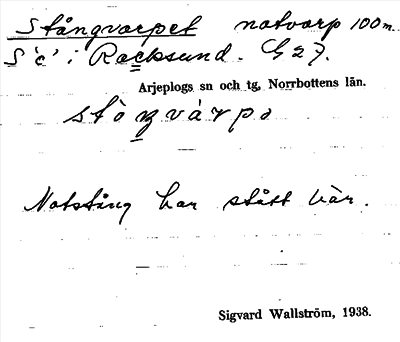 Stångvarpet notvarp 100 m.
S "c" i Racksund. G 27.
Arjeplogs sn och tg, Norrbottens län.
Notstång har stått här.
Sigvard Wallström, 1938.